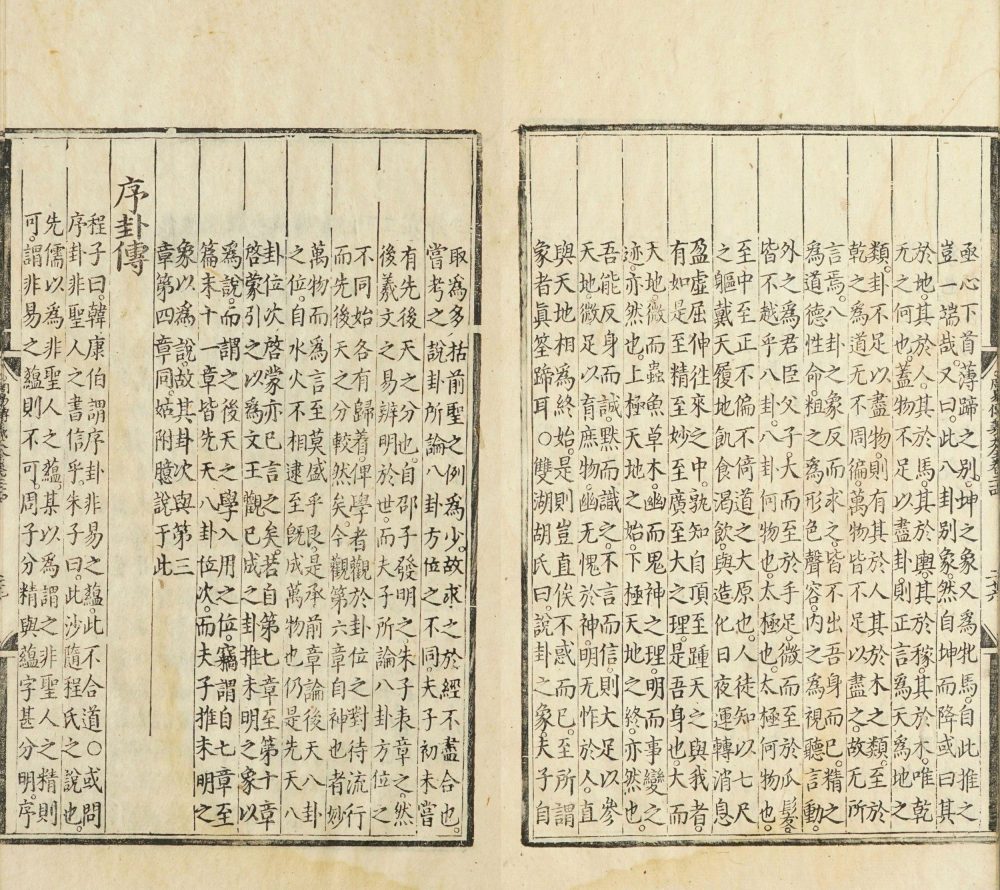 亟心下首薄蹄之别坤之象又爲牝馬自此推之
豈一端哉又曰此八卦别象然自坤而降或曰其
於地其於人其於馬其於輿其於稼其於木唯乾
无之何也蓋物不足以盡卦則正言爲天爲地之
類卦不足以盡物則有其於人其於木之類至於
乾之爲道无不周徧萬物皆不足以盡之故无所
言焉八卦之象反而求之皆不出吾身而已精之
爲道德性命粗之爲形色聲容内之爲視聽言動
外之爲君臣父子大而至於手足微而至於爪髮
皆不越乎八卦八卦何物也太極也太極何物也
至中至正不偏不倚道之大原也人徒知以七尺
之軀戴天履地飢食渴飲與造化日夜運轉消息
盈虚屈伸徃來之中孰知自頂至踵天之與我者
有如是至精至妙至廣至大之理是吾身也大而
天地微而蟲魚草木幽而鬼神之理明而事變之
迹亦然也上極天地之始下極天地之終亦然也
吾能反身而誠默而識之不言而信則大足以參
天地微足以育庶物幽无愧於神明无怍於人直
與天地相爲終始是則豈直俟不惑而已至所謂
象者眞筌蹄耳○雙湖胡氏曰說卦之象夫子自
取爲多括前聖之例爲少故求之於經不盡合也
嘗考之說卦所論八卦方位之不同夫子初未嘗
有先後天之分也自邵子發明之朱子表章之然
後羲文之易辨明於世而夫子所論八卦方位之
不同始各有歸着俾學者觀於卦位之對待流行
而先後天之分較然矣今觀第六章自神也者妙
萬物而爲言至莫盛乎艮是承前章論後天八卦
之位自水火不相逮至旣成萬物也仍是先天八
卦位次啓蒙亦已言之矣若自第七章至第十章
啓蒙引之以爲文王觀已成之卦推未明之象以
爲說而謂之後天之學入用之位竊謂自七章至
篇末十一章皆先天八卦位次而夫子推未明之
象以爲說故其卦次與第三
章第四章同姑附臆說于此
序卦傳
程子曰韓康伯謂序卦非易之蘊此不合道○或問
序卦非聖人之書信乎朱子曰此沙隨程氏之說也
先儒以爲非聖人之蘊某以爲謂之非聖人之精則
可謂非易之蘊則不可周子分精與蘊字甚分明序